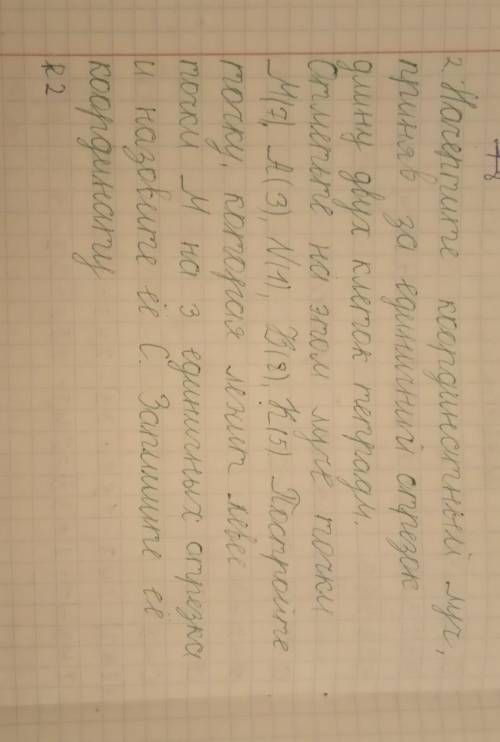 2. Начертите координатный луч,
приняв за единичный отрезок
длину двух клеток тетради.
Отметьте на этом луче точки
М(7), А(3), N(1), В(8), К(5) Постройте
точку, которая лежит левее
точки М на 3 единичных отрезка
и назовите её С. Запишите её
координату